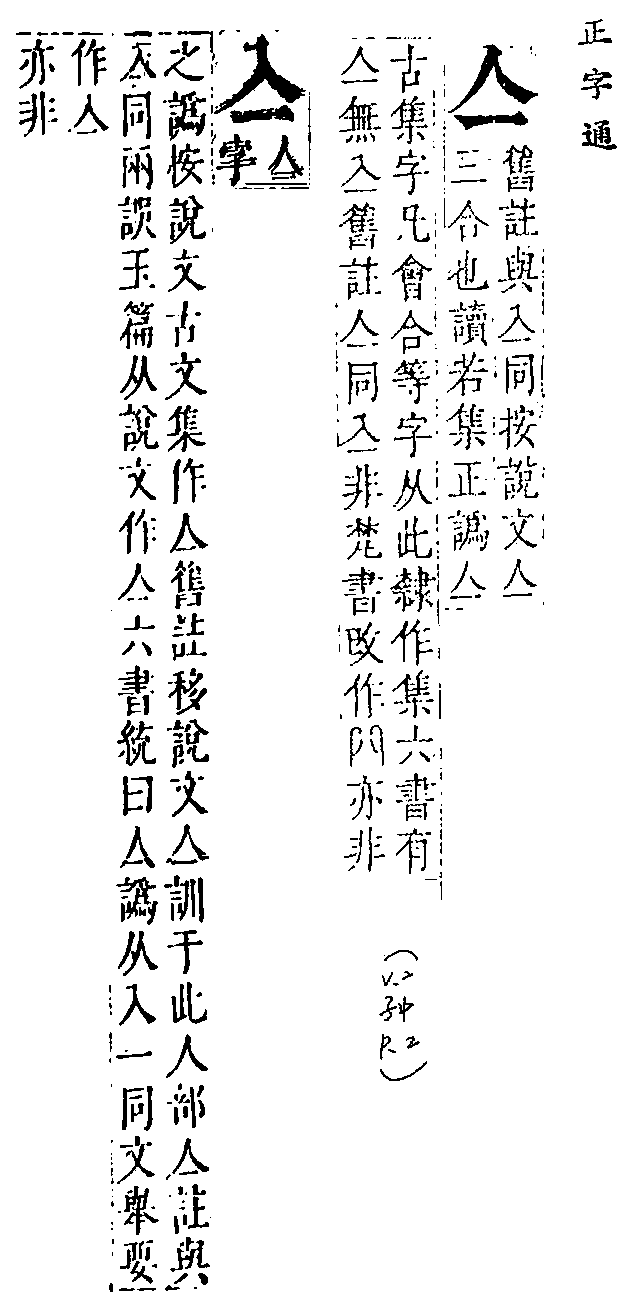 正字通
亼
舊註與亼同按說文亼
三合也讀若集正譌亼
古集字凡會合等字从此隸作集六書有
亼無亼舊註亼同亼非梵書改作門亦非
(V.2
子中
P.2)
亼
亼
字
之譌按說文古文集作亼舊註移說文亼訓于此人部亼註與
亼同兩誤玉篇从說文作亼六書統曰亼譌从入一同文舉要
作亼
亦非